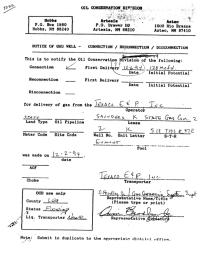 OIL CONSERVATION DIVISION
Hobbs
P.O. Box 1980
Hobbs, NM 88240
Artesia
P.O. Drawer DD
Artesia, NM 88210
Aztec
1000 Rio Brazos
Aztec, NM 87410
NOTICE OF GAS WELL - CONNECTION / RECONNECTION / DISCONNECTION
This is to notify the Oil Conservation Division of the following:
Connection First Delivery
Date Initial Potential
Reconnection First Delivery
Date Initial Potential
Disconnection
for delivery of gas from the Texaco E & P Inc
Operator
STATE K State Gas Com 2
Land Type Oil Pipeline Lease
2 K
Meter Code Site Code Well No. Unit Letter S-T-R
Eumont
Pool
was made on 12-2-94
date
AOF
Choke
Texaco E&P, Inc.
Transporter
OCD use only
County Lea
Status
Liq. Transporter
Representative Name/Title
(Please type or print)
Representative Signature
Note: Submit in duplicate to the appropriate district office.